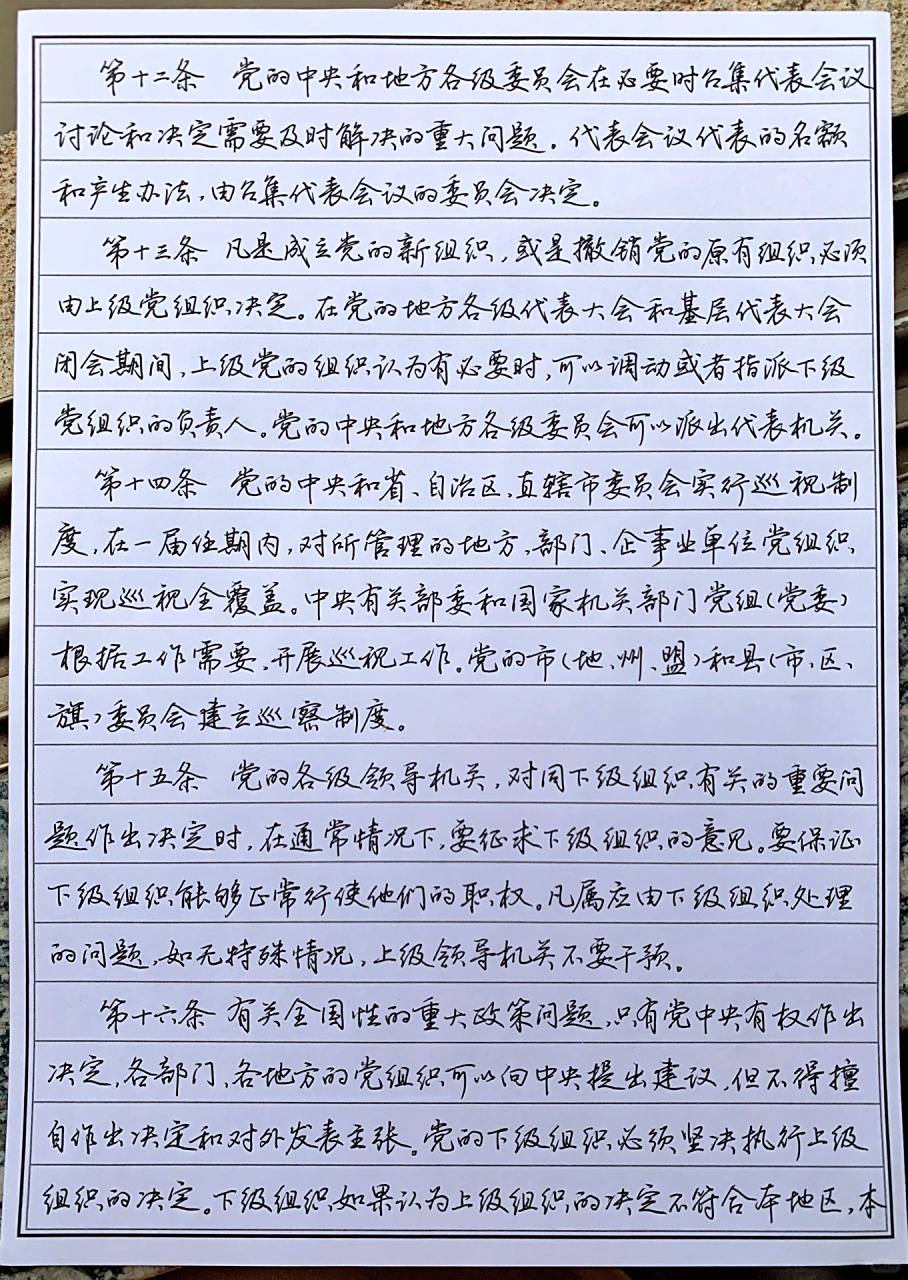 第十二条 党的中央和地方各级委员会在必要时召集代表会议
讨论和决定需要及时解决的重大问题。代表会议代表的名额
和产生办法,由召集代表会议的委员会决定。
第十三条 凡是成立党的新组织,或是撤销党的原有组织,必须
由上级党组织决定。在党的地方各级代表大会和基层代表大会
闭会期间,上级党的组织认为有必要时,可以调动或者指派下级
党组织的负责人。党的中央和地方各级委员会可以派出代表机关。
第十四条 党的中央和省、自治区、直辖市委员会实行巡视制
度,在一届任期内,对所管理的地方、部门、企事业单位党组织
实现巡视全覆盖。中央有关部委和国家机关部门党组(党委)
根据工作需要,开展巡视工作。党的市(地、州、盟)和县(市、区、
旗)委员会建立巡察制度。
第十五条 党的各级领导机关,对同下级组织有关的重要问
题作出决定时,在通常情况下,要征求下级组织的意见。要保证
下级组织能够正常行使他们的职权。凡属应由下级组织处理
的问题,如无特殊情况,上级领导机关不要干预。
第十六条 有关全国性的重大政策问题,只有党中央有权作出
决定,各部门、各地方的党组织可以向中央提出建议,但不得擅
自作出决定和对外发表主张。党的下级组织必须坚决执行上级
组织的决定。下级组织如果认为上级组织的决定不符合本地区、本